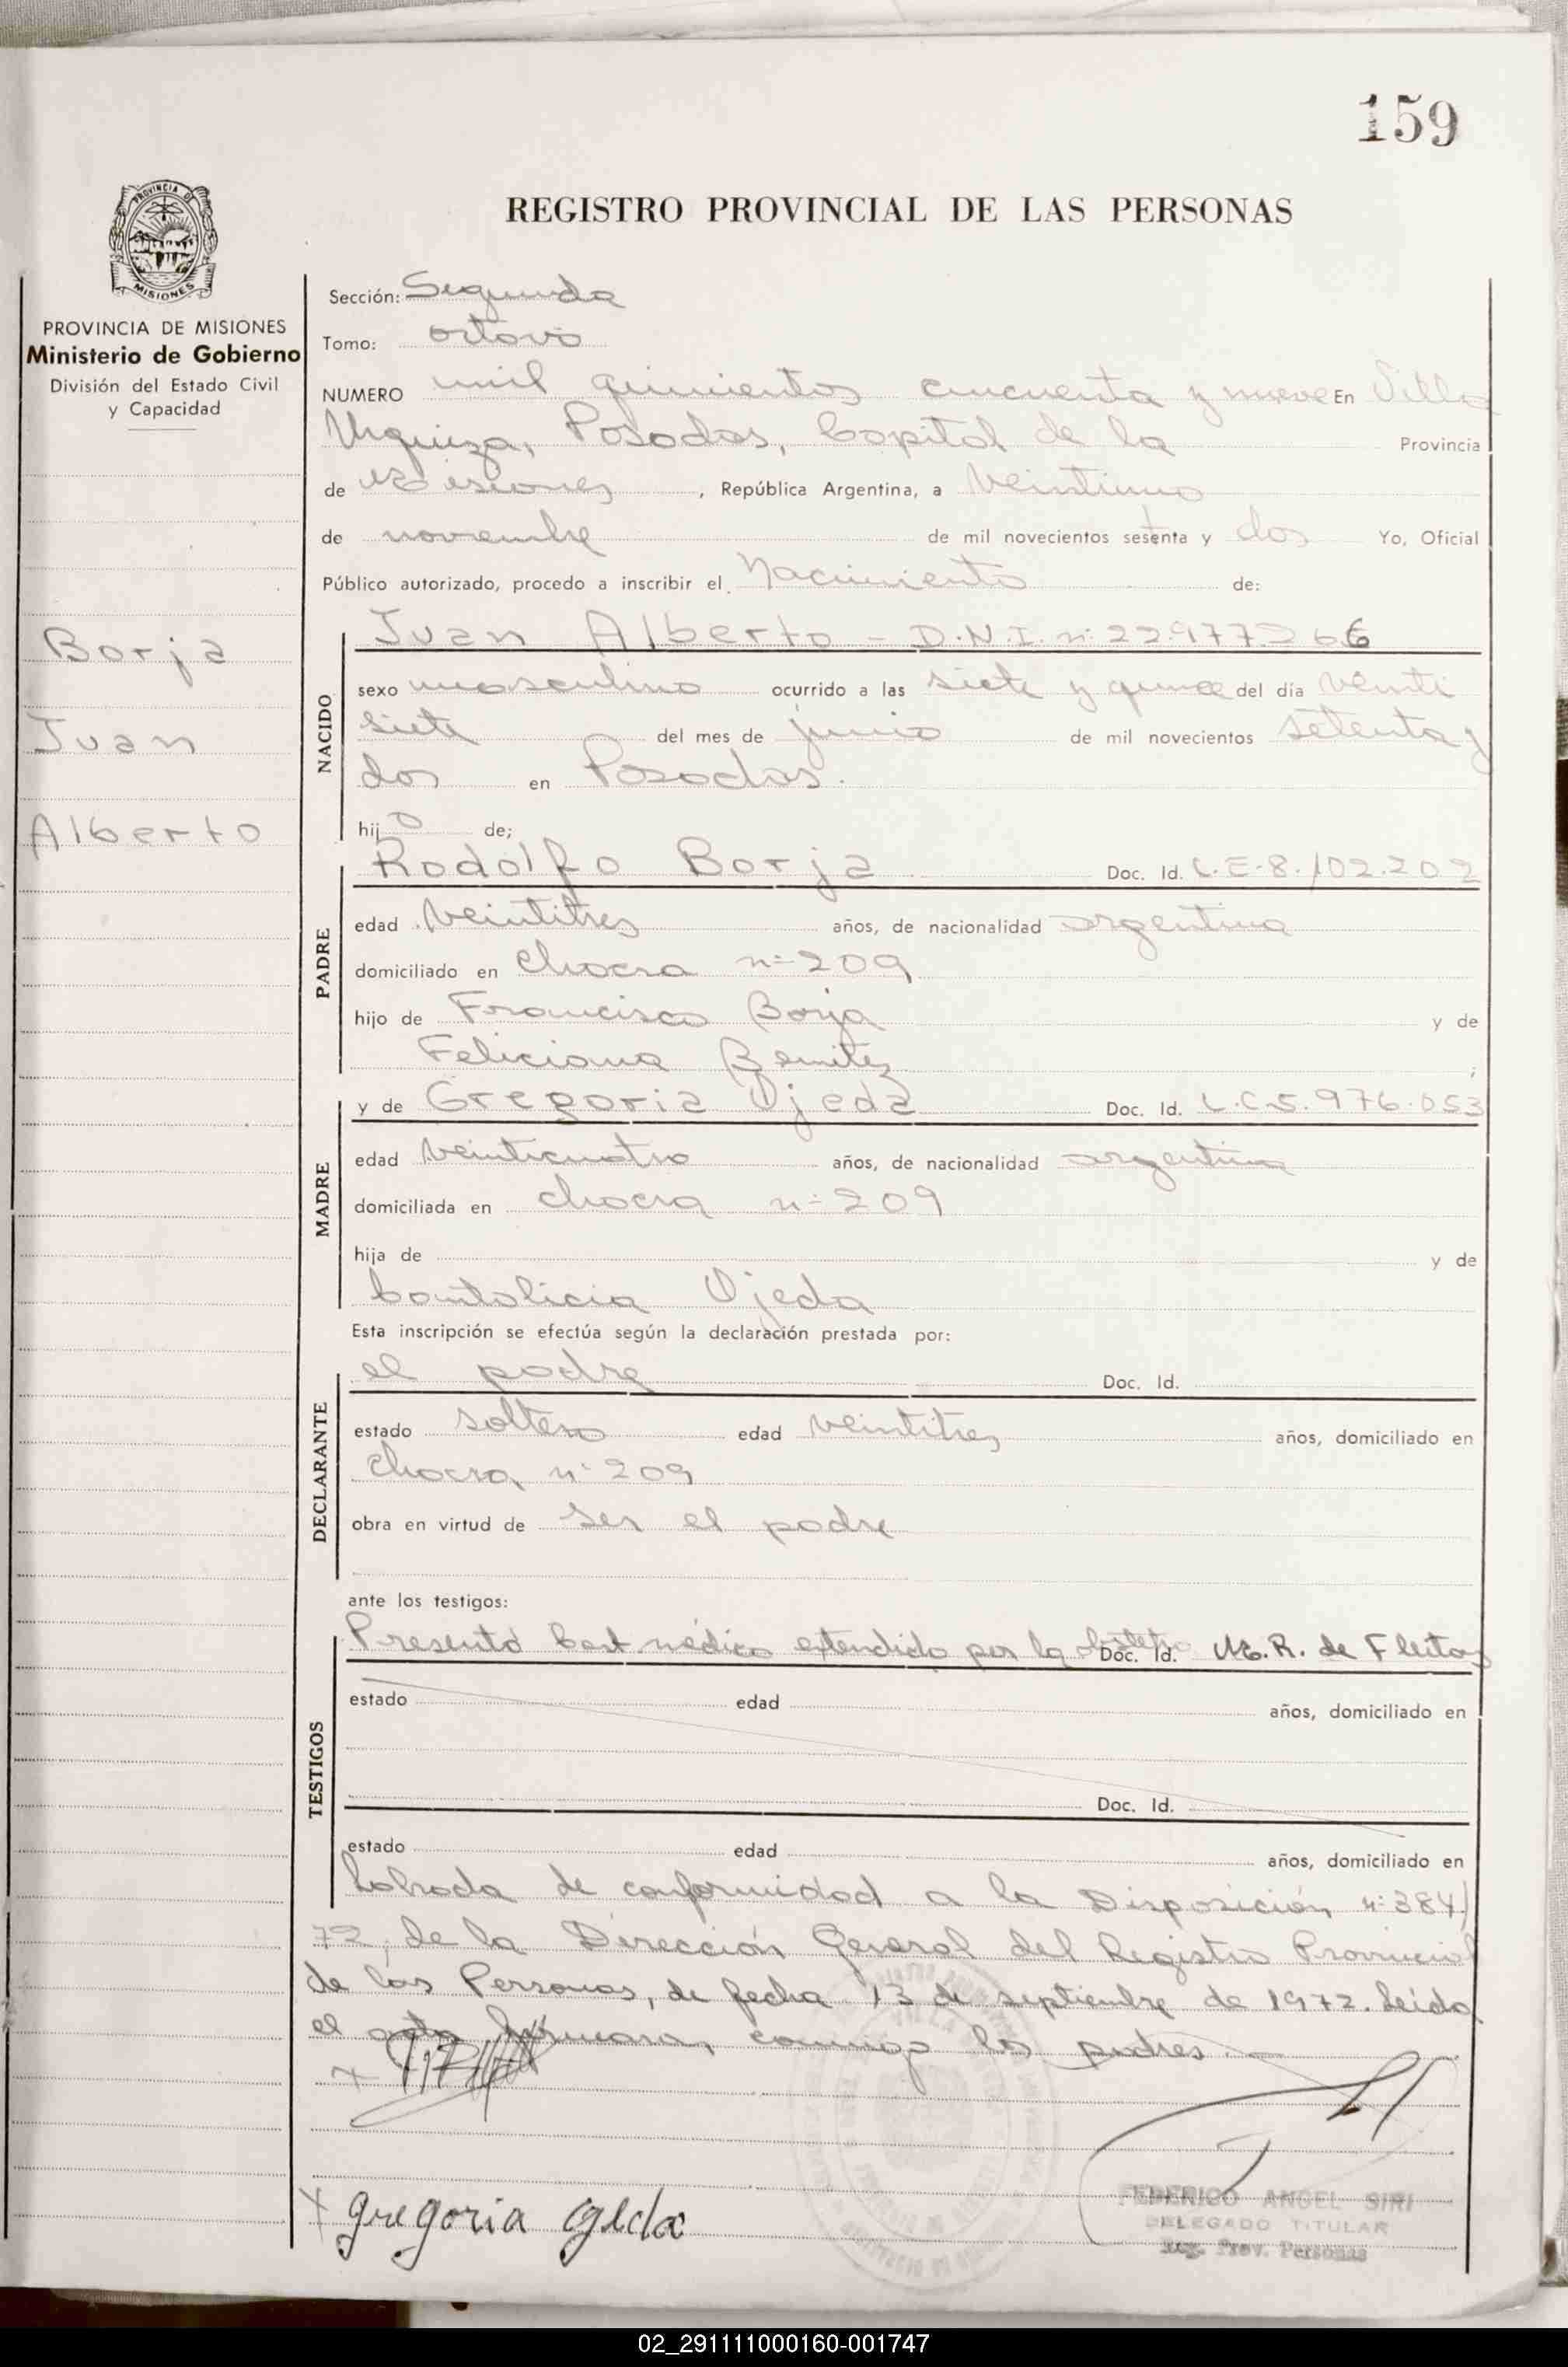 159
PROVINCIA DE
MISIONES
REGISTRO PROVINCIAL DE LAS PERSONAS
PROVINCIA DE MISIONES
Ministerio de Gobierno
División del Estado Civil
y Capacidad
Borja
Juan
Alberto
Sección: Segunda
Tomo: octavo
NUMERO mil quinientos cincuenta y nueve En Villa
Urquiza, Posadas, Capital de la Provincia
de Misiones, República Argentina, a veintiuno
de noviembre de mil novecientos sesenta y dos Yo, Oficial
Público autorizado, procedo a inscribir el Nacimiento de:
NACIDO
Juan Alberto - D.N.I. nº: 22.977.266
sexo masculino ocurrido a las siete y quince del día veinti
siete del mes de junio de mil novecientos setenta y
dos en Posadas.
hijo de;
PADRE
Rodolfo Borja Doc. Id. L.E. 8.102.202
edad veintitres años, de nacionalidad argentina
domiciliado en chacra nº 209
hijo de Francisco Borja y de
Feliciana Benitez ;
MADRE
y de Gregoria Ojeda Doc. Id. L.C 5.976.053
edad veinticuatro años, de nacionalidad argentina
domiciliada en chacra nº 209
hija de y de
Cantalicia Ojeda
Esta inscripción se efectúa según la declaración prestada por:
DECLARANTE
el padre Doc. Id.
estado soltero edad veintitres años, domiciliado en
chacra nº 209
obra en virtud de ser el padre
ante los testigos:
TESTIGOS
Presentó Cert. médico extendido por la obstetra Doc. Id. M.R. de Fleitas
estado edad años, domiciliado en
Doc. Id.
estado edad años, domiciliado en
Labrada de conformidad a la Disposición nº: 384/
72, de la Dirección General del Registro Provincial
de las Personas, de fecha 13 de septiembre de 1972. Leída
el acta firmaron conmigo los padres.
x
x gregoria ojeda
FEDERICO ANGEL SIRI
DELEGADO TITULAR
Reg. Prov. Personas
02_291111000160-001747